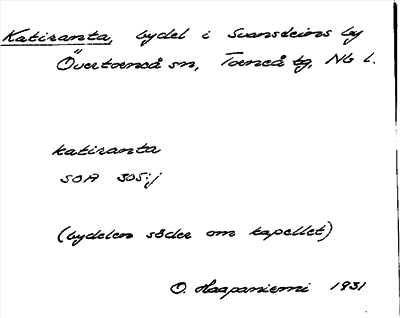 Katiranta, bydel i Svansteins by
Övertorneå sn, Torneå tg, Nb l.
katiranta
SOA 305:j
(bydelen söder om kapellet)
O. Haapaniemi 1931